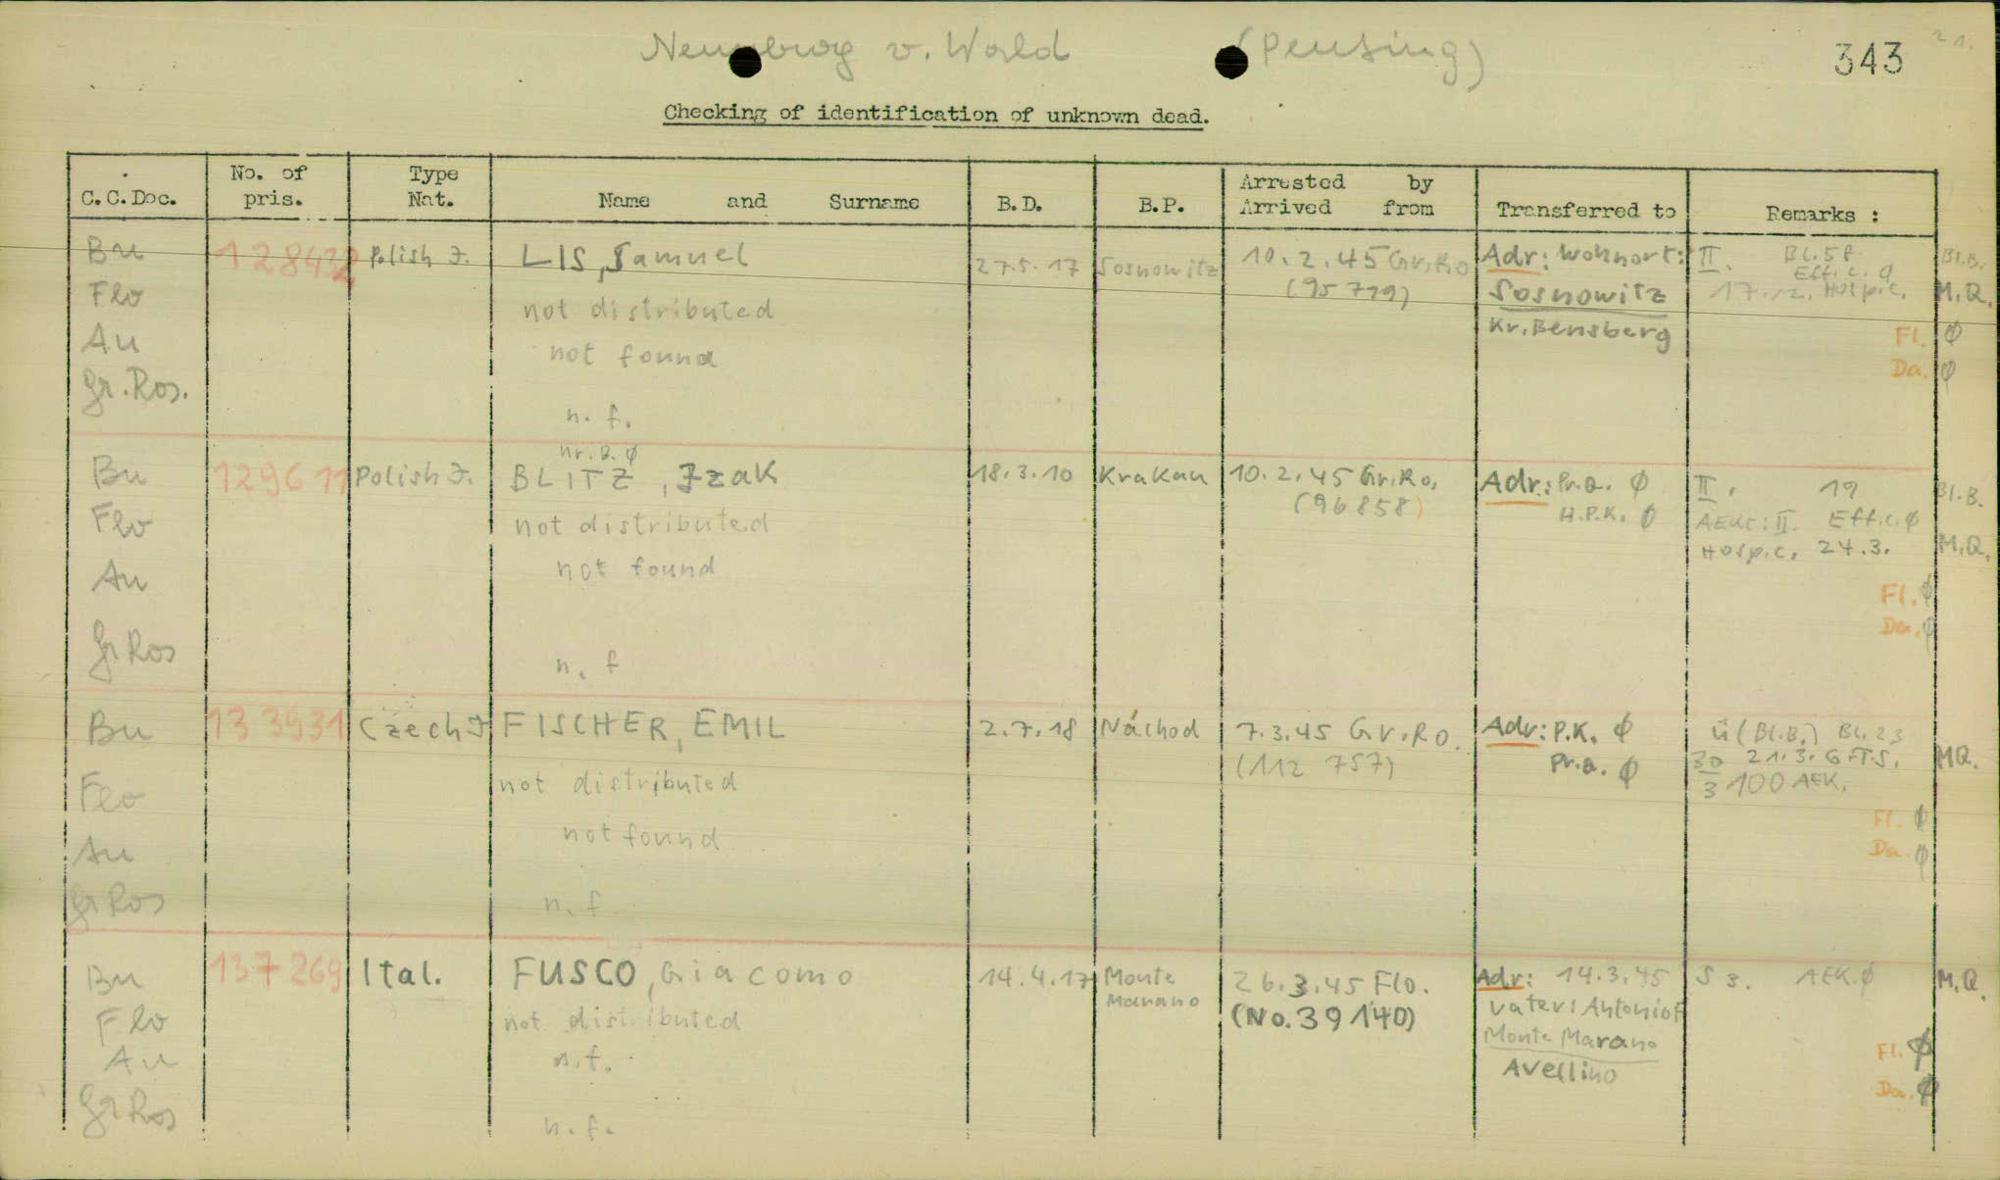 Neunburg v. Wald (Pensing)
343
21.
Checking of identification of unknown dead.
C.C.Doc.
No. of pris.
Type Nat.
Name and Surname
B.D.
B.P.
Arrested by
Arrived from
Transferred to
Remarks :
Bu 128432 Polish J. LIS, Samuel 27.5.17 Sosnowitz 10.2.45 Gr.Ro Adr: Wohnort: II. Bl.58 Bl.B.
Eff.c.
Flo not distributed (95779) Sosnowitz 17.12. Hosp.c. M.Q.
Au not found Kr.Bensberg Fl. Ø
Da. Ø
Gr.Ros.
n. f.
nr.B. Ø
Bu 129611 Polish J. BLITZ, Izak 18.3.10 Krakau 10.2.45 Gr.Ro. Adr: Pr.a. Ø II. 19 Bl.B.
Flo not distributed (96858) H.P.K. Ø AEKC: II. Eff.c. Ø
Hosp.c. 24.3. M.Q.
Au not found Fl. Ø
Da. Ø
Gr Ros n. f
Bu 133931 Czech J FISCHER, EMIL 2.7.18 Náchod 7.3.45 Gr.Ro. Adr: P.K. Ø ü(Bl.B.) Bl.23
(112 757) Pr.a. Ø 30 21.3. G.T.S. MQ.
Flo not distributed 3 100 AEK.
Fl. Ø
Au not found Da Ø
Gr Ros n. f
Bu 137269 Ital. FUSCO, Giacomo 14.4.17 Monte 26.3.45 Flo. Adr: 14.3.45 S 3. AEK.Ø M.Q.
Marano
Flo not distributed (No.39140) Vater: Antonio F
Monte Marano
Au n.f. Avellino Fl. Ø
Da. Ø
Gr Ros n. f.